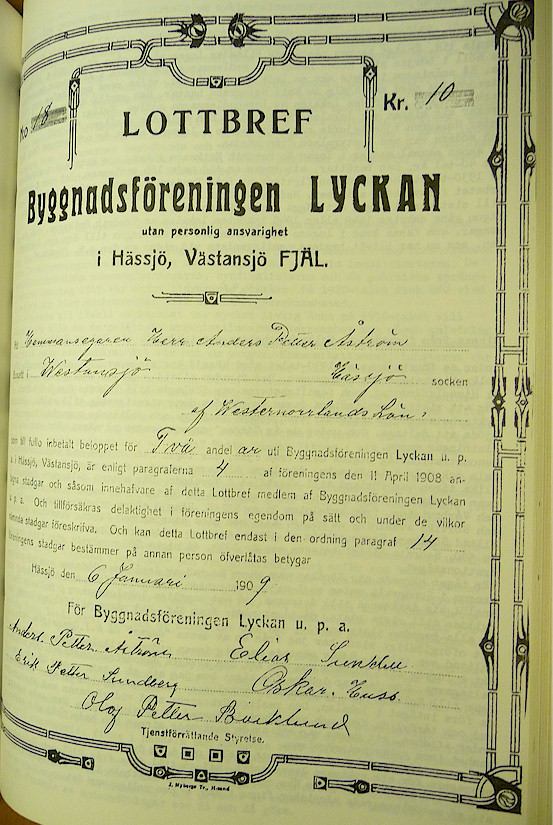 No 18
Kr. 10
LOTTBREF
Byggnadsföreningen LYCKAN
utan personlig ansvarighet
i Hässjö, Västansjö FJÄL.
Hemmansegaren Herr Anders Petter Åström
Westansjö Hässjö socken
af Westernorrlands Län:
som till fullo inbetalt beloppet för Två andel ar uti Byggnadsföreningen Lyckan u. p.
a. i Hässjö, Västansjö, är enligt paragraferna 4 af föreningens den 11 April 1908 an-
tagna stadgar och såsom innehafvare af detta Lottbref medlem af Byggnadsföreningen Lyckan
u. p. a. Och tillförsäkras delaktighet i föreningens egendom på sätt och under de vilkor
nämnda stadgar föreskrifva. Och kan detta Lottbref endast i den ordning paragraf 14
föreningens stadgar bestämmer på annan person öfverlåtas betygar
Hässjö den 6 Januari 1909
För Byggnadsföreningen Lyckan u. p. a.
Anders Petter Åström Elias
Erik Petter Sundberg Oskar Huss.
Olof Petter Bäcklund
Tjenstförrättande Styrelse.
J. Nybergs Tr., H-sand